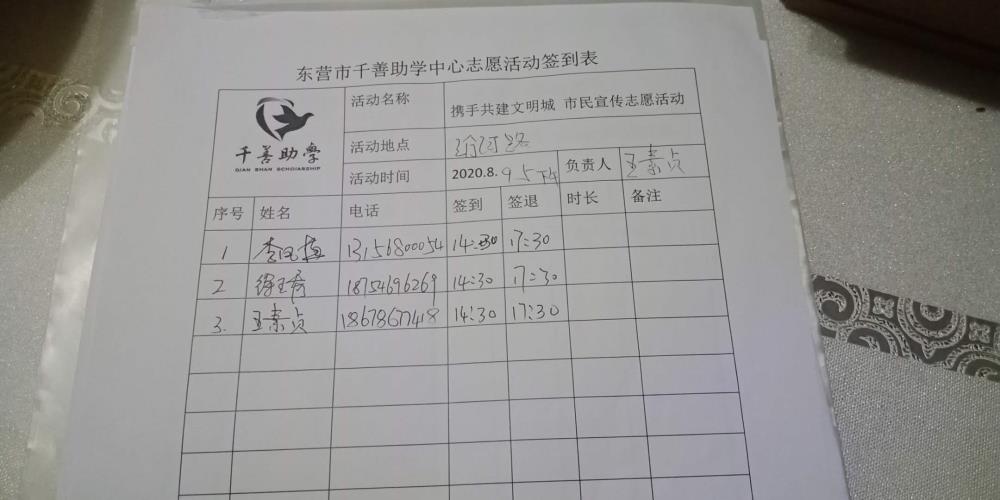 东营市千善助学中心志愿活动签到表
千善助学
QIAN SHAN SCHOLARSHIP
活动名称 携手共建文明城 市民宣传志愿活动
活动地点
活动时间 2020.8. 9 负责人 王素贞
序号 姓名 电话 签到 签退 时长 备注
1 李凤梅 13156800054 14:30 17:30
2 徐玉秀 18754696269 14:30 17:30
3. 王素贞 18678677418 14:30 17:30